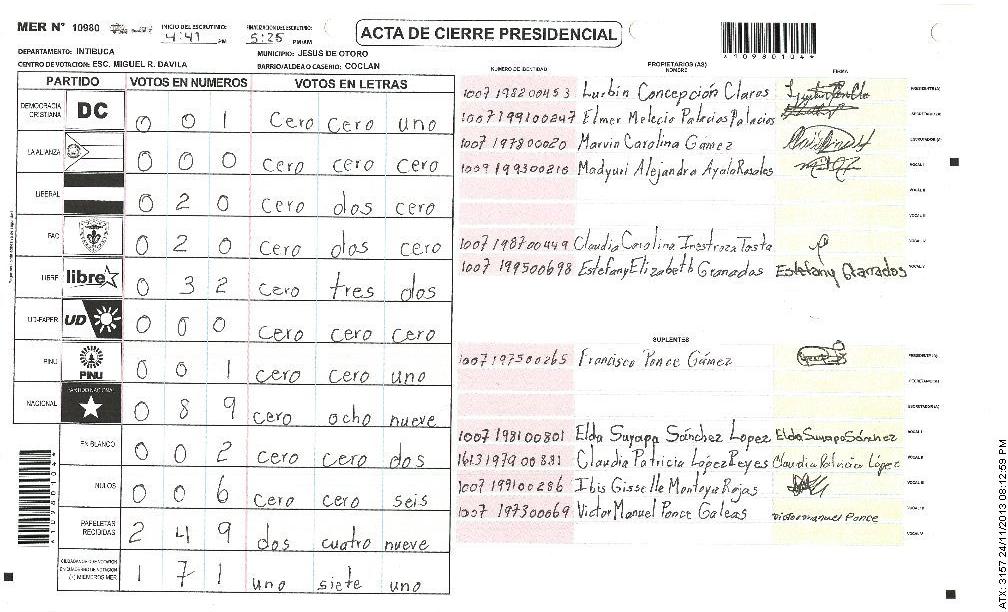 MER N° 10980 INICIO DEL ESCRUTINIO: 4:41 PM FINALIZACION DEL ESCRUTINIO: 5:25 PM/AM
ACTA DE CIERRE PRESIDENCIAL
*10980104*
DEPARTAMENTO: INTIBUCA MUNICIPIO: JESUS DE OTORO
CENTRO DE VOTACION: ESC. MIGUEL R. DAVILA BARRIO/ALDEA O CASERIO: COCLAN
PARTIDO VOTOS EN NUMEROS VOTOS EN LETRAS
DEMOCRACIA CRISTIANA DC 0 0 1 cero cero uno
LA ALIANZA 0 0 0 cero cero cero
LIBERAL 0 2 0 cero dos cero
PAC 0 2 0 cero dos cero
LIBRE libre 0 3 2 cero tres dos
UD-FAPER UD 0 0 0 cero cero cero
PINU PINU 0 0 1 cero cero uno
NACIONAL PARTIDO NACIONAL 0 8 9 cero ocho nueve
EN BLANCO 0 0 2 cero cero dos
NULOS 0 0 6 cero cero seis
PAPELETAS RECIBIDAS 2 4 9 dos cuatro nueve
(+) MIEMBROS MER 1 7 1 uno siete uno
*10980104*
NUMERO DE IDENTIDAD PROPIETARIOS (AS) NOMBRE FIRMA
1007 198200453 Lurbin Concepción Claros PRESIDENTE(A)
1007 199100247 Elmer Melecio Palacios Palacios SECRETARIO(A)
1007 197800020 Marvin Carolina Gamez ESCRUTADOR(A)
1009 199300210 Madyuri Alejandra Ayala Rosales VOCAL I
VOCAL II
VOCAL III
1007 198700449 Claudia Carolina Inestroza Tosta VOCAL IV
1007 199500698 Estefany Elizabeth Granados Estefany Granados VOCAL V
SUPLENTES
1007 197500265 Francisco Ponce Gámez PRESIDENTE(A)
SECRETARIO(A)
ESCRUTADOR(A)
1007 198100801 Elda Suyapa Sánchez Lopez Elda Suyapa Sánchez VOCAL I
1613 197900881 Claudia Patricia López Reyes Claudia Patricia López VOCAL II
1007 199100286 Ibis Gisselle Montoya Rojas VOCAL III
1007 197300069 Victor Manuel Ponce Galeas victor manuel Ponce
VOCAL V
ATX: 3157 24/11/2013 08:12:59 PM